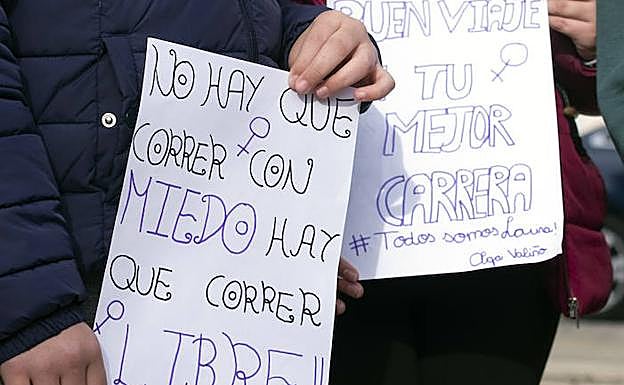 NO HAY QUE
CORRER CON
MIEDO HAY
QUE CORRER
LIBRE!!
BUEN VIAJE
A TU
MEJOR
CARRERA
#Todos somos Laura!
Olga Valiño